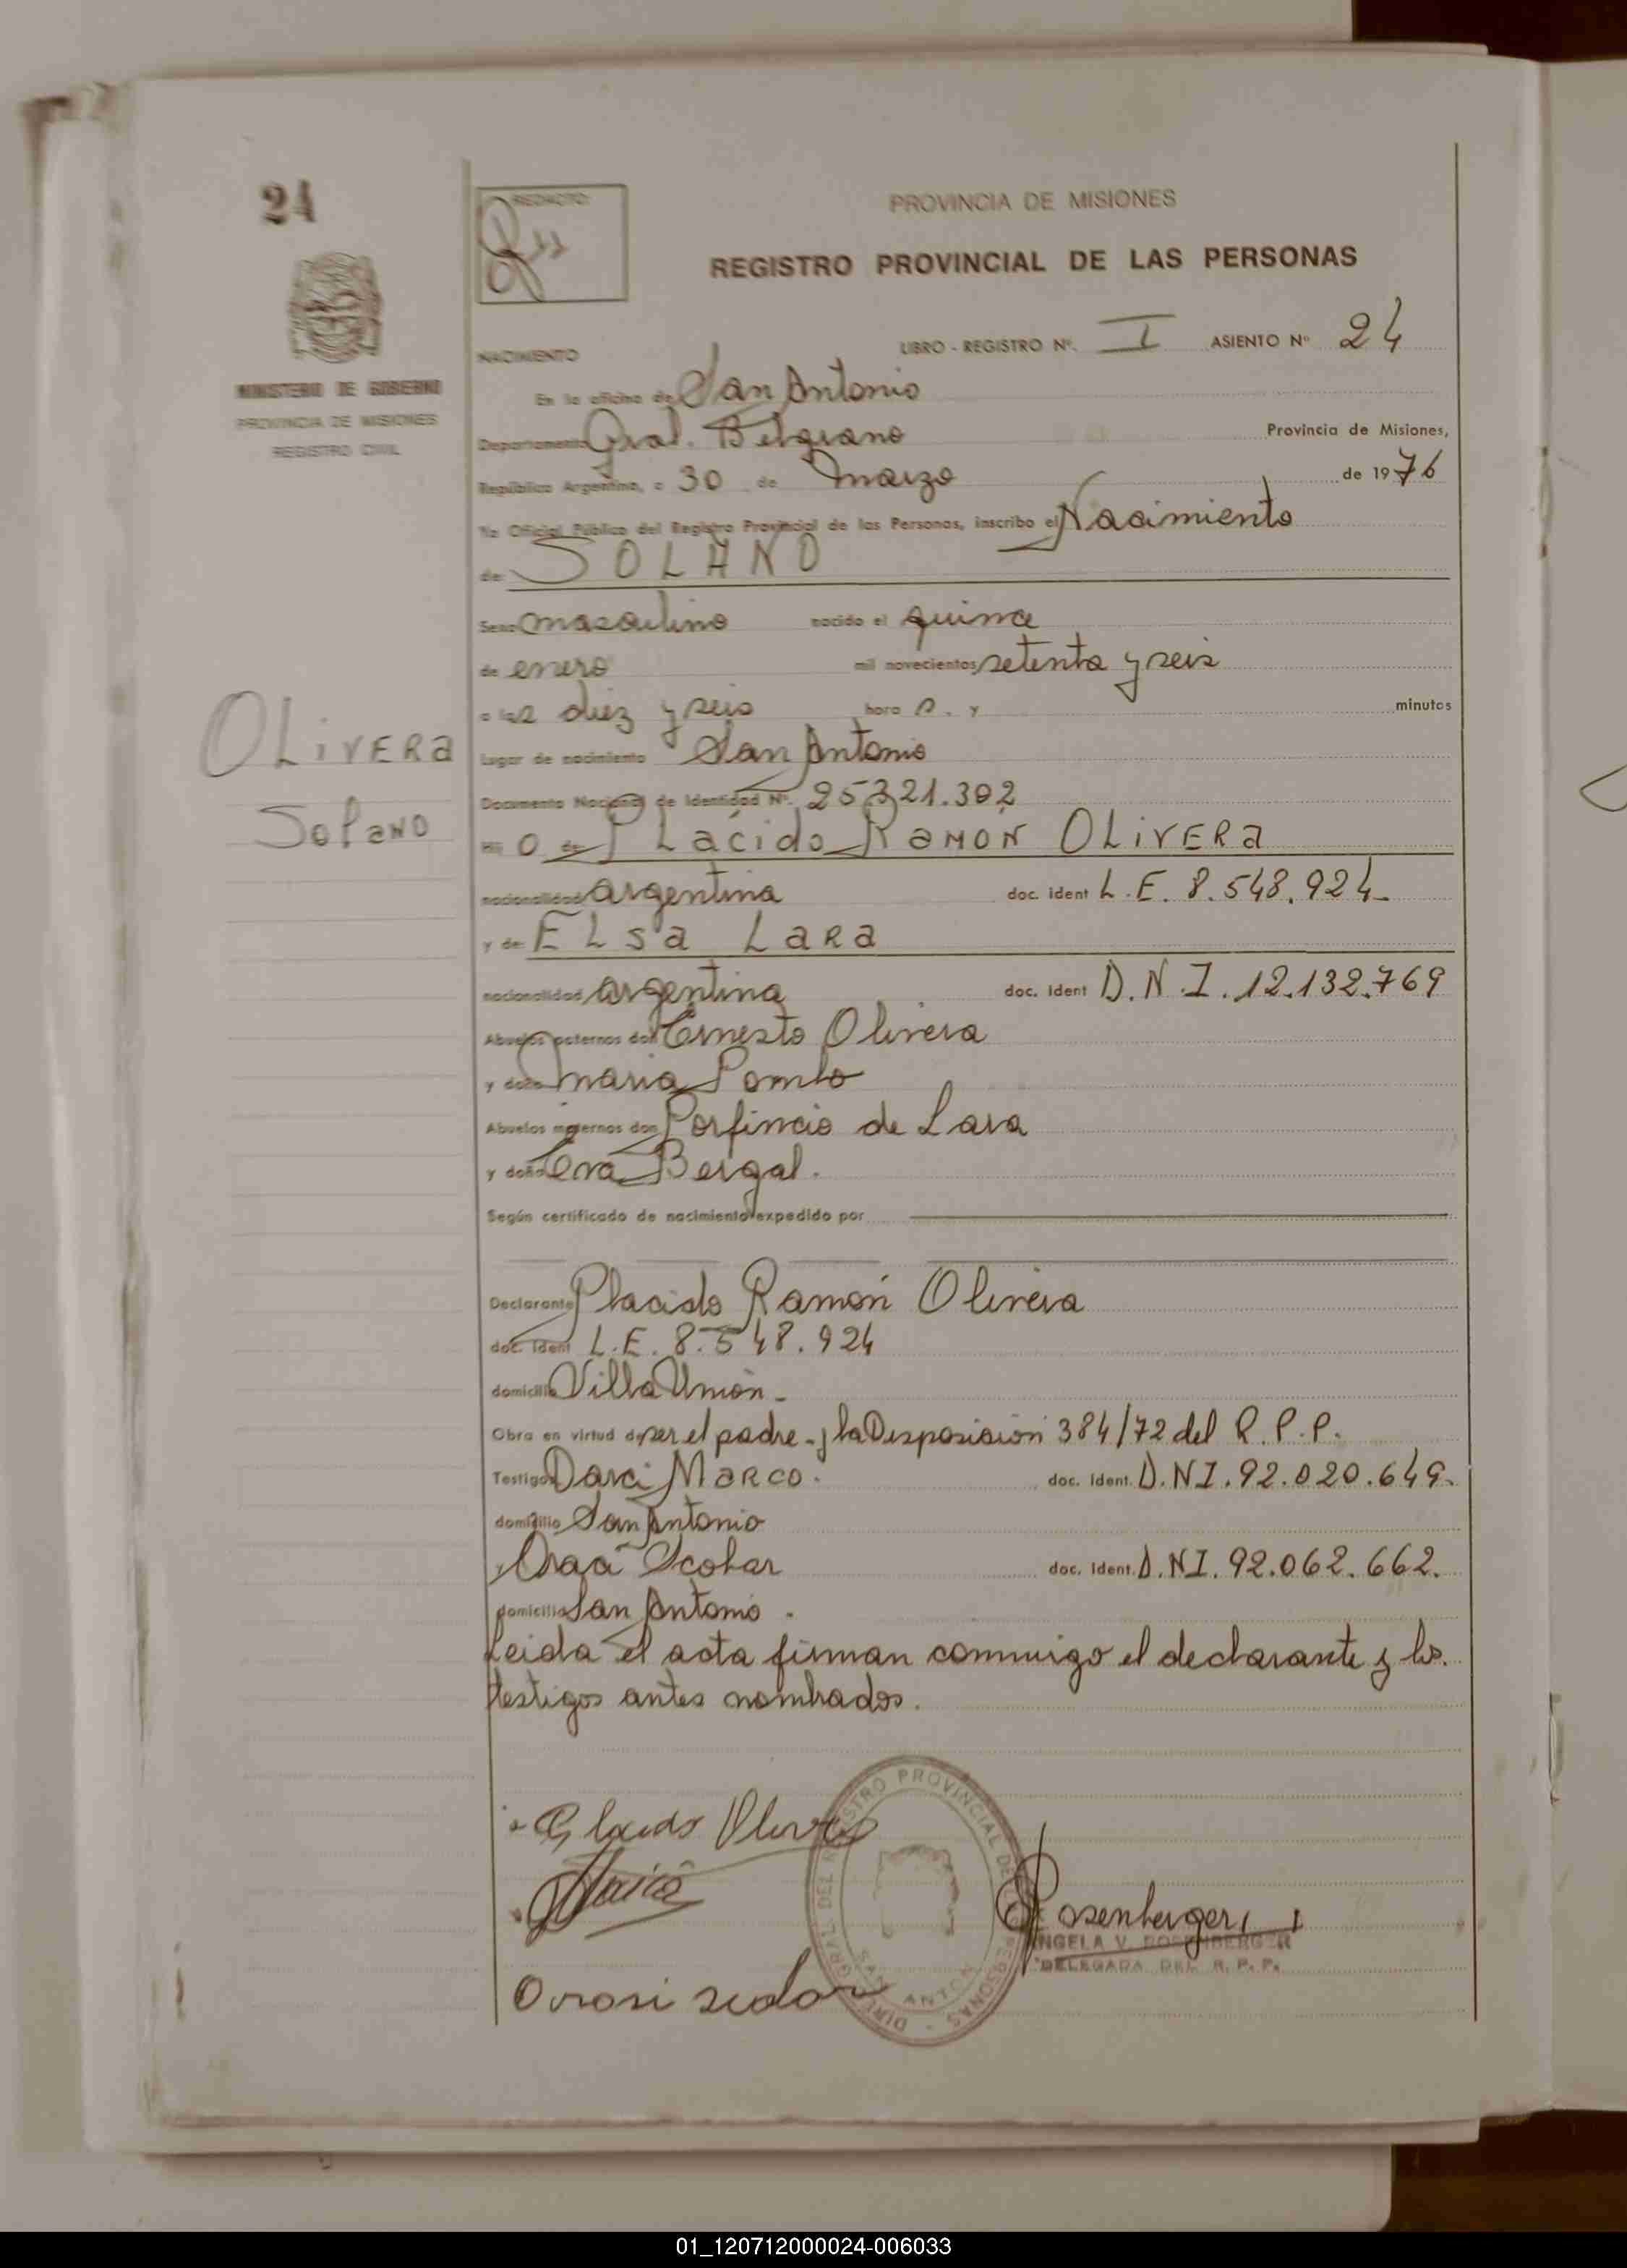 24
MINISTERIO DE GOBIERNO
PROVINCIA DE MISIONES
REGISTRO CIVIL
OLIVERA
Solano
REDACTO:
PROVINCIA DE MISIONES
REGISTRO PROVINCIAL DE LAS PERSONAS
NACIMIENTO LIBRO - REGISTRO Nº. I ASIENTO Nº 24
En la oficina de San Antonio
Departamento Gral. Belgrano Provincia de Misiones,
República Argentina, a 30 de Marzo de 1976
Yo Oficial Público del Registro Provincial de las Personas, inscribo el Nacimiento
de: SOLANO
Sexo masculino nacido el quince
de enero mil novecientos setenta y seis
a las diez y seis hora s. y minutos
Lugar de nacimiento San Antonio
Documento Nacional de Identidad Nº. 25.321.302
Hij o de PLacido RAMON OLIVERA
nacionalidad argentina doc. ident L.E. 8.548.924-
y de: ELsa LaRa
nacionalidad argentina doc. ident D.N.I. 12.132.769
Abuelos paternos don Ernesto Olivera
y doña maria
Abuelos maternos don Porfincio de Lara
y doña Eva Bergal.
Según certificado de nacimiento expedido por
Declarante Placido Ramón Olivera
doc. ident L.E. 8.548.924
domicilio Villa Unión-
Obra en virtud de ser el padre-y la Disposición 384/72 del R.P.P.
Testigos Darci MARCO. doc. ident. D.N.I. 92.020.649.
domicilio San Antonio
y Scobar doc. ident. D.N.I. 92.062.662.
domicilio San Antonio.
Leida el acta firman conmigo el declarante y los
testigos antes nombrados.
DIREC. GRAL. DEL REGISTRO PROVINCIAL DE LAS PERSONAS - SAN ANTONIO
Rosenberger
ANGELA V. ROSENBERGER
DELEGADA DEL R. P. P.
01_120712000024-006033